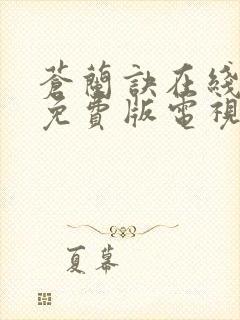 蒼蘭訣在綫
免費版電視
夏蕃